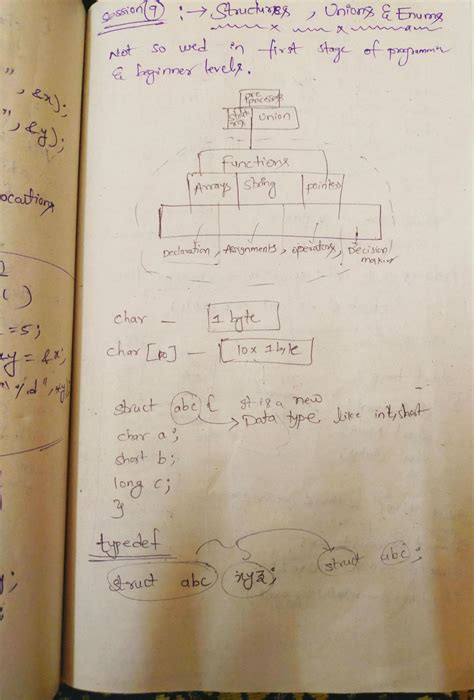 Session (9) :→ Structures, Unions & Enums
Not so used in first stage of programmer
& beginner levels.
", &x);
", &y);
ocations
( )
=5;
= &x;
Pre
processor
Union
Functions
Arrays String pointers
Declaration, Assignments, operators, Decision
making
char — 1 byte
char [10] — 10 x 1 byte
struct abc { it is a new
Data type like int, short
char a;
short b;
long c;
}
typedef
struct abc xyz; struct abc;